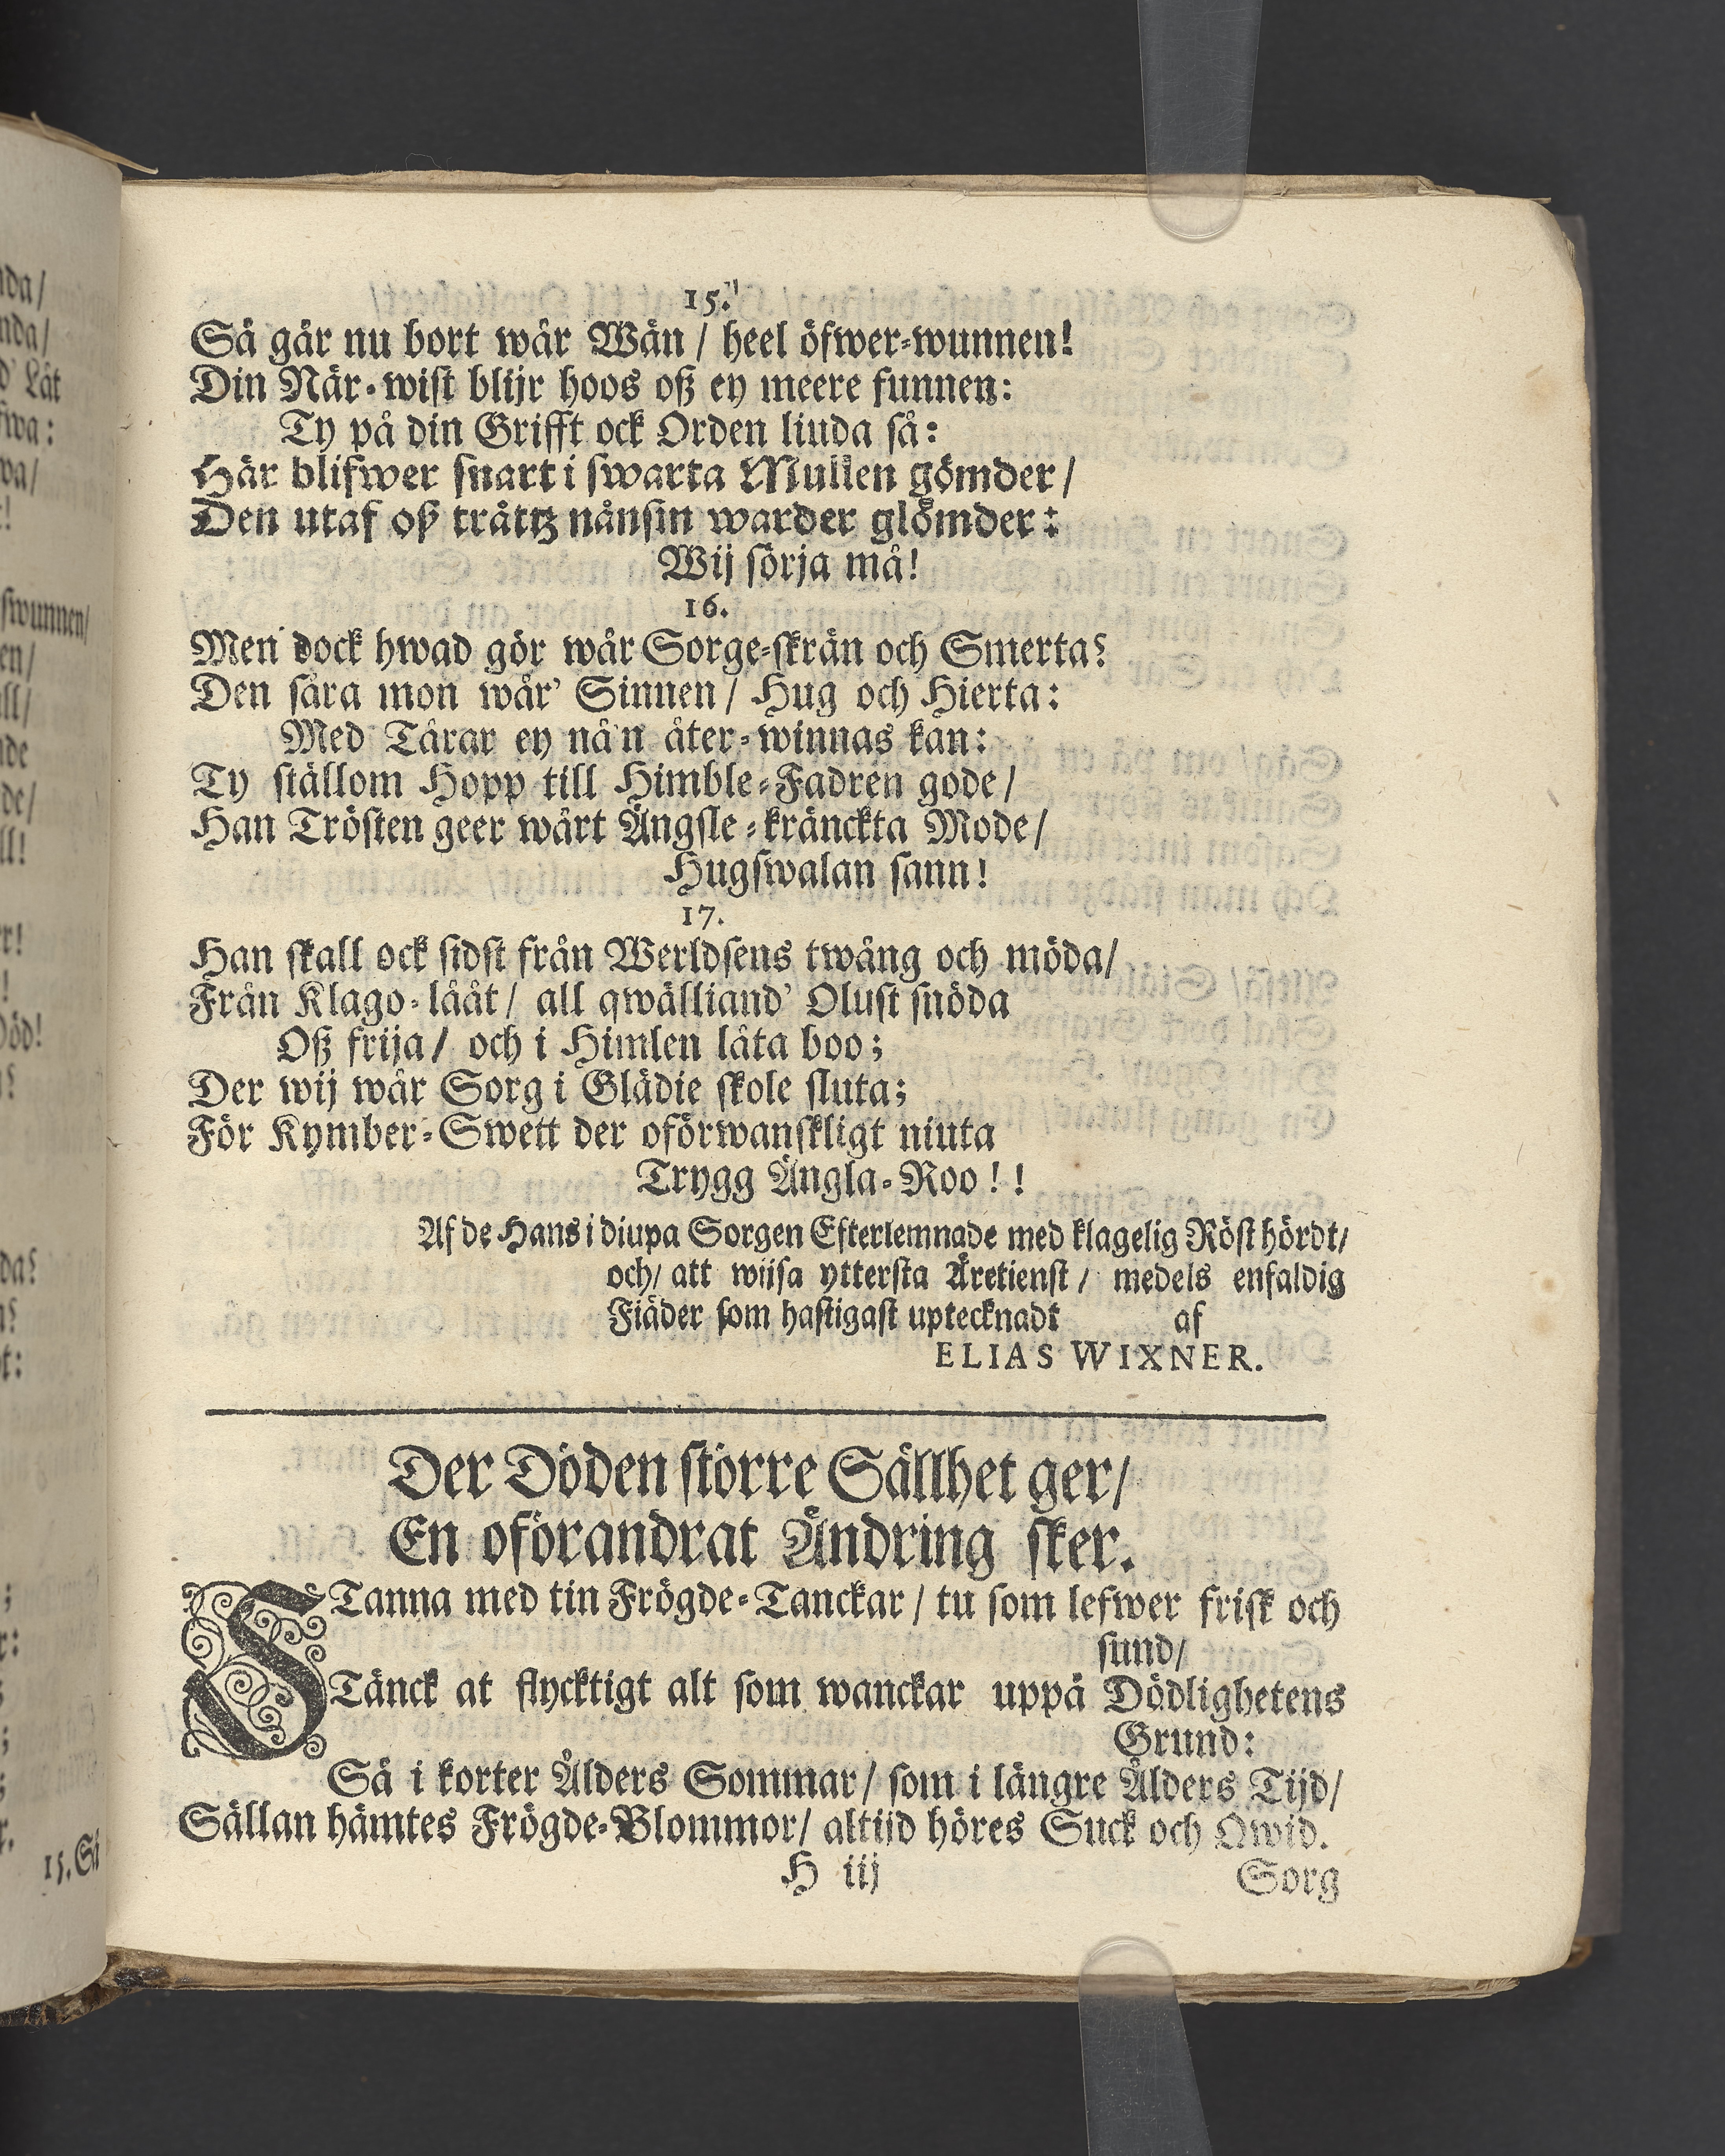 15.
Så går nu bort wår Wän / heel öfwer-wunnen!
Din När-wist blijr hoos oß ey meere funnen:
Ty på din Grifft ock Orden liuda så:
Här blifwer snart i swarta Mullen gömder /
Den utaf oß trättz nånsin warder glömder:
Wij sörja må!
16.
Men dock hwad gör wår Sorge-skrän och Smerta?
Den såra mon wår' Sinnen / Hug och Hierta:
Med Tårar ey nå'n åter-winnas kan:
Ty ställom Hopp till Himble-Fadren gode /
Han Trösten geer wårt Ängsle-kränckta Mode /
Hugswalan sann!
17.
Han skall ock sidst från Werldsens twång och möda /
Från Klago-lååt / all qwälliand' Olust snöda
Oß frija / och i Himlen låta boo;
Der wij wår Sorg i Glädie skole sluta;
För Kymber-Swett der oförwanskligt niuta
Trygg Ängla-Roo!!
Af de Hans i diupa Sorgen Efterlemnade med klagelig Röst hördt /
och / att wiisa yttersta Äretienst / medels enfaldig
Fiäder som hastigast uptecknadt af
ELIAS WIXNER.
Der Döden större Sällhet ger /
En oförandrat Ändring sker.
STanna med tin Frögde-Tanckar / tu som lefwer frisk och
sund /
Tänck at flycktigt alt som wanckar uppå Dödlighetens
Grund:
Så i korter Ålders Sommar / som i längre Ålders Tijd /
Sällan hämtes Frögde-Blommor / altijd höres Suck och Qwid.
H iij Sorg